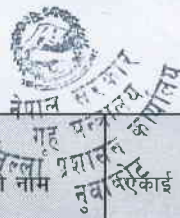 नेपाल सरकार
गृह मन्त्रालय
जिल्ला प्रशासन कार्यालय
नुवाकोट
नाम
एकाई